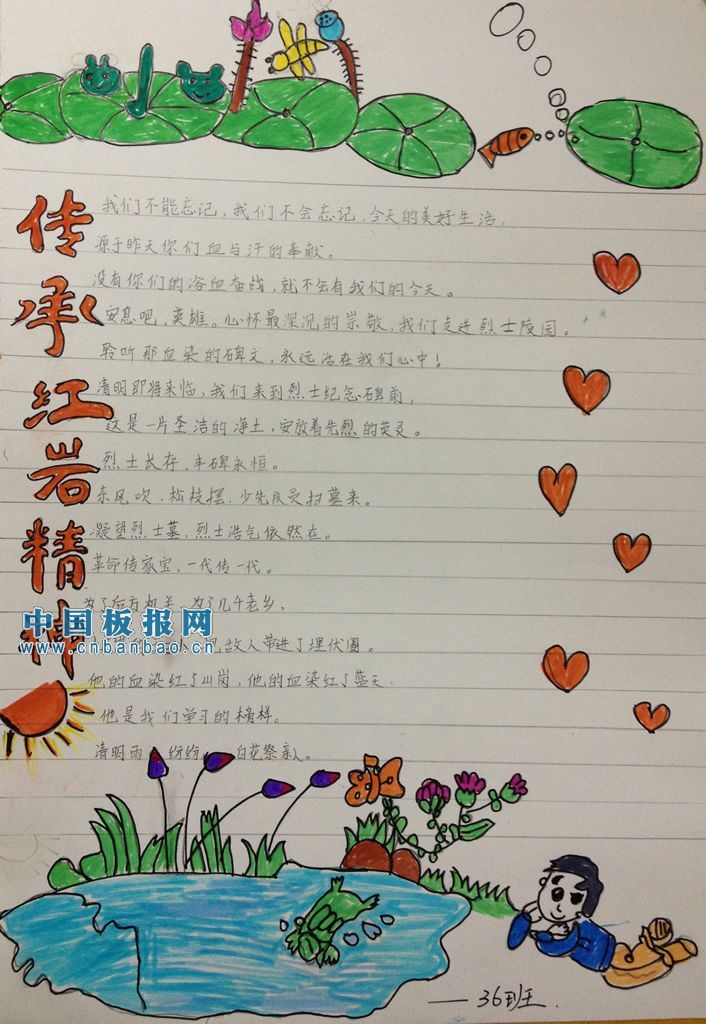 传承红岩精神
我们不能忘记，我们不会忘记，今天的美好生活，
源于昨天你们血与汗的奉献。
没有你们的浴血奋战，就不会有我们的今天。
安息吧，英雄。心怀最深沉的崇敬，我们走进烈士陵园。
聆听那血染的碑文，永远活在我们心中！
清明即将来临，我们来到烈士纪念碑前，
这是一片圣洁的净土，安放着先烈的英灵。
烈士长存、丰碑永恒。
东风吹，松枝摆，少先队员扫墓来。
凝望烈士墓，烈士浩气依然在。
革命传家宝，一代传一代。
为了后方机关，为了几千老乡，
中国板报网
www.cnbanbao.cn
敌人带进了埋伏圈。
他的血染红了山岗，他的血染红了蓝天，
他是我们学习的榜样。
清明雨 纷纷 白花祭亲人。
——36班